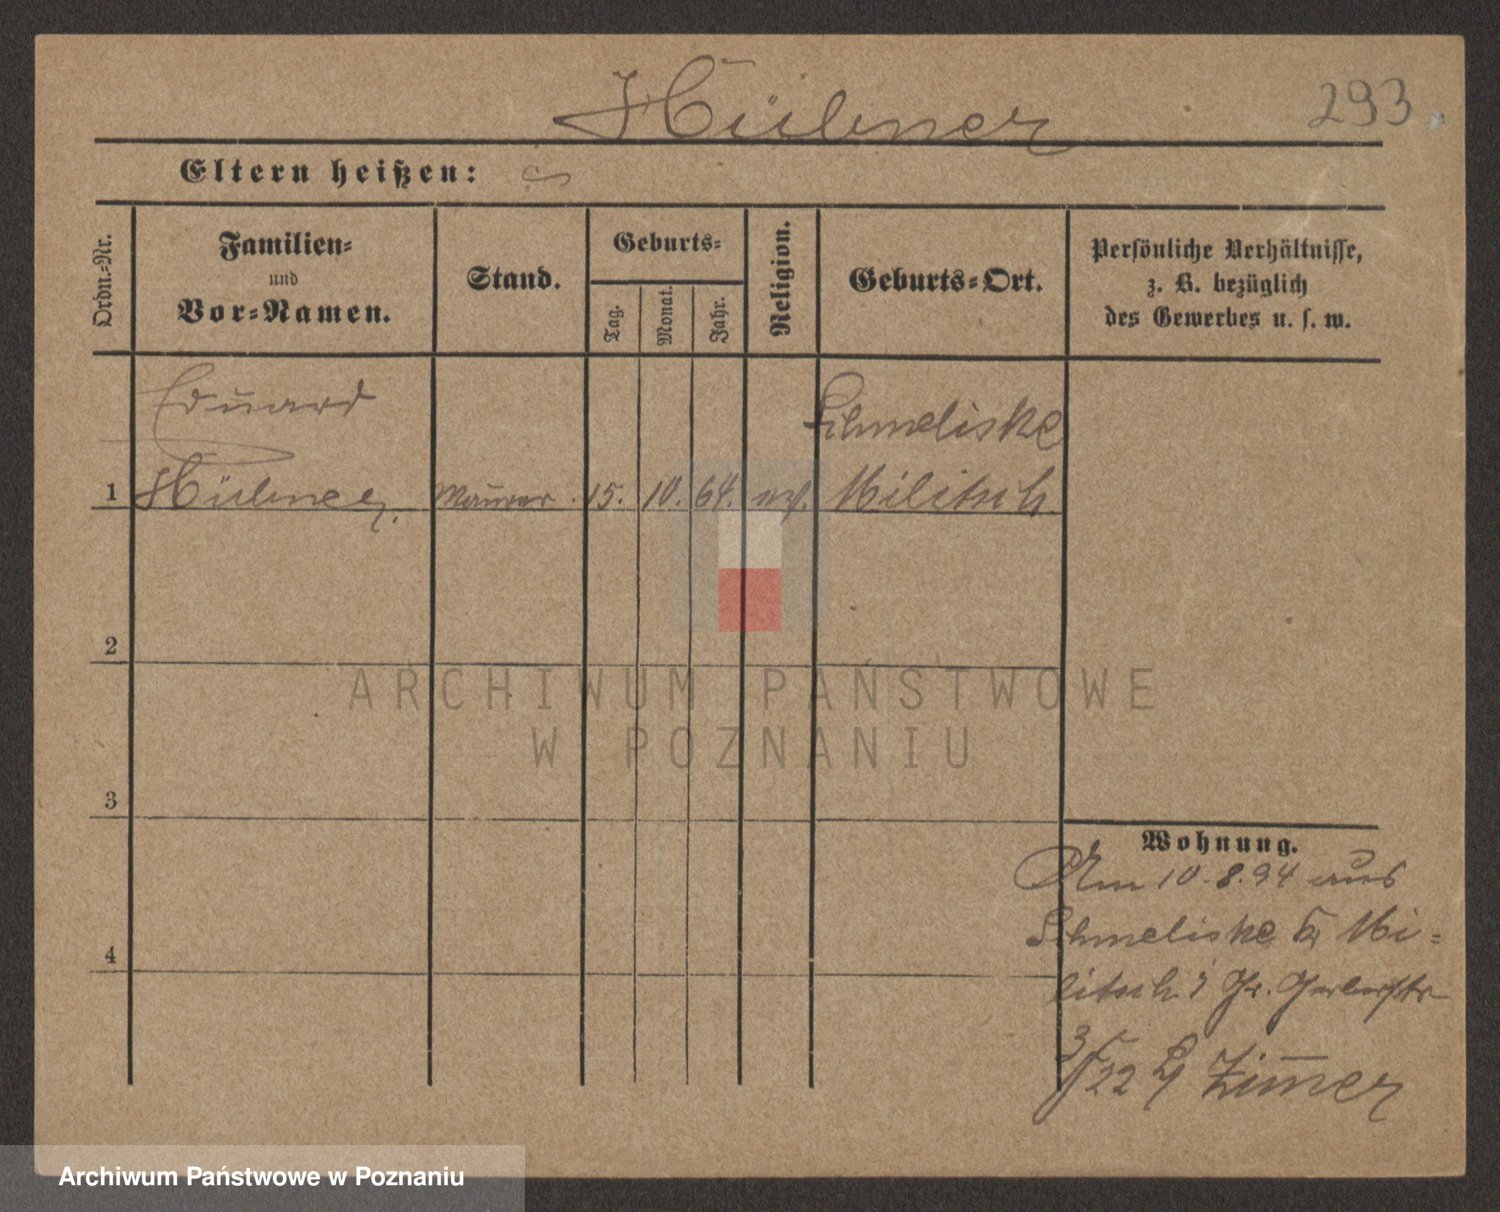 Hübner
293.
Eltern heißen:
Ordn.-Nr.
Familien-
und
Vor-Namen.
Stand.
Geburts-
Tag.
Monat.
Jahr.
Religion.
Geburts-Ort.
Persönliche Verhältnisse,
z. B. bezüglich
des Gewerbes u. s. w.
Eduard
Schmeliske
1 Hübner. Maurer 15. 10. 64. Militsch
2
3
4
Wohnung.
Am 10.8.94 aus
Schmeliske Mi-
litsch Gr. Gerberstr
3/22 Zimmer
ARCHIWUM PAŃSTWOWE
W POZNANIU
Archiwum Państwowe w Poznaniu